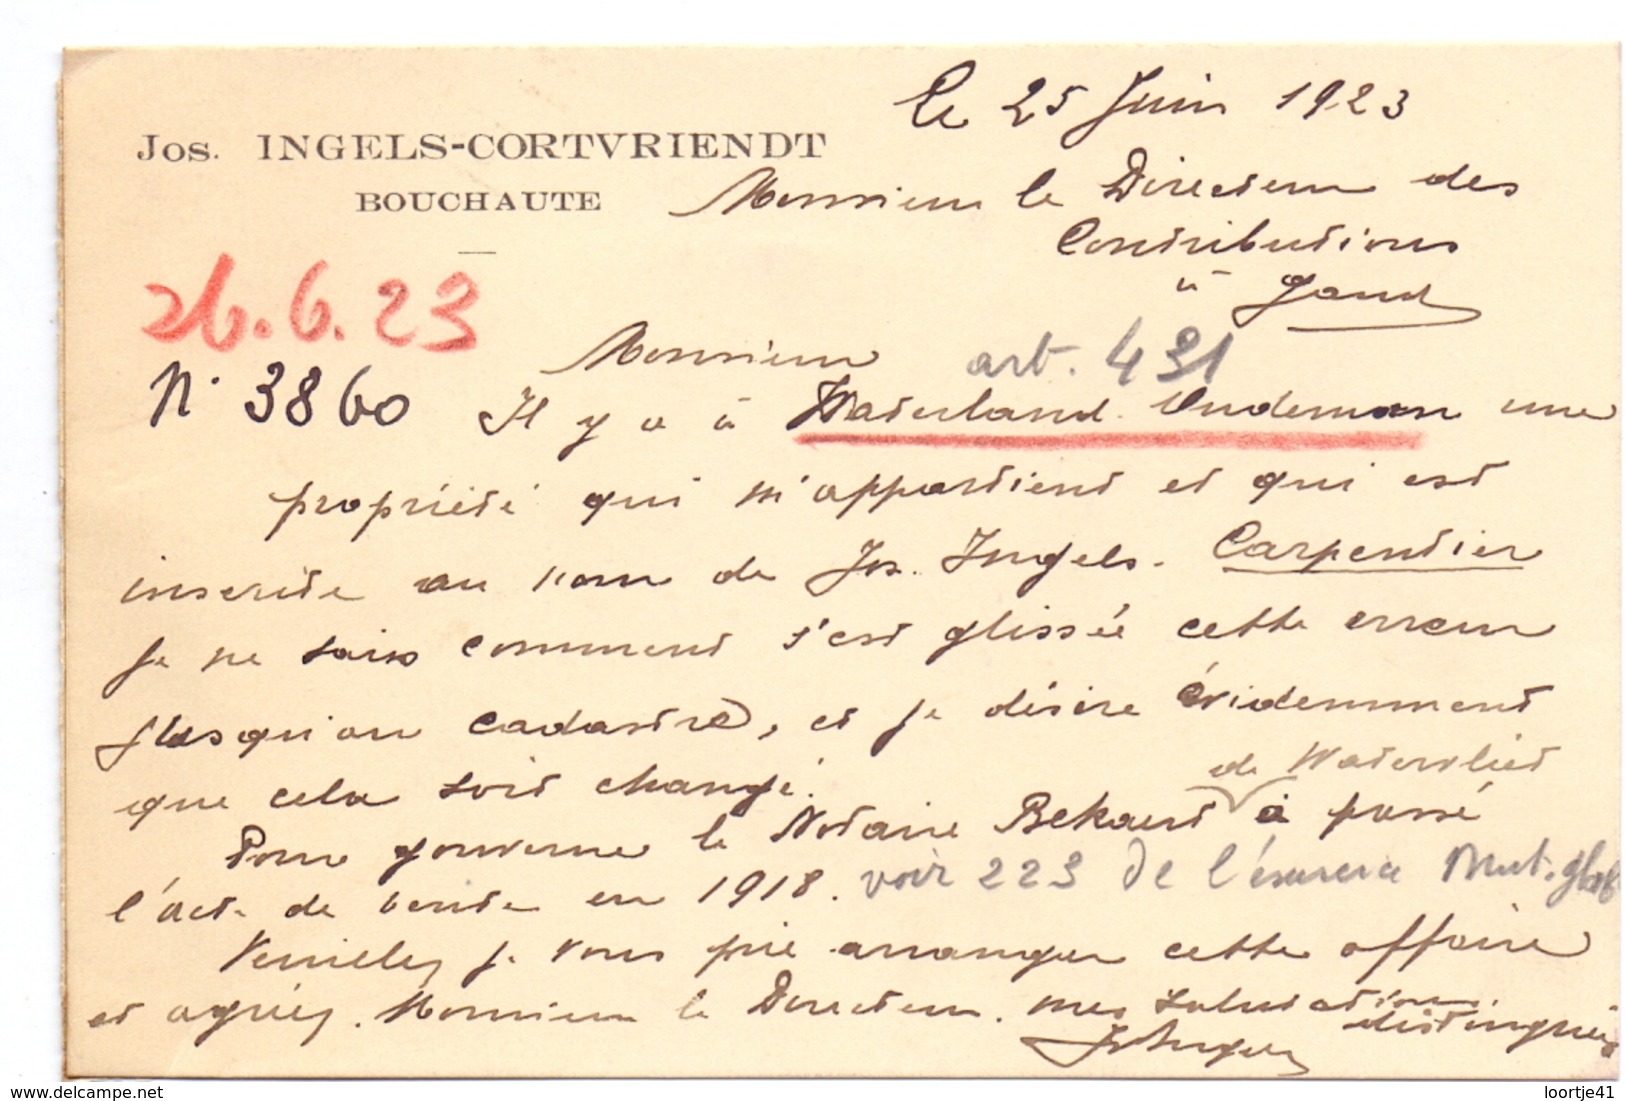 Le 25 Juin 1923
Jos. INGELS-CORTVRIENDT
BOUCHAUTE
Monsieur le Directeur des
Contributions
à Gand
26.6.23
N° 3860
Monsieur
art. 431
Il y a à Waterland Oudeman une
propriété qui m'appartient et qui est
inscrite au nom de Jos. Ingels. Carpentier
je ne sais comment s'est glissée cette erreur
jusqu'au cadastre, et je désire évidemment
que cela soit changé.
de Watervliet
Pour gouverne le Notaire Bekaert à passé
l'acte de vente en 1918. voir 223 de l'exercice Mut.
Veuillez je vous prie arranger cette affaire
et agréez. Monsieur le Directeur. mes salutations
distinguées
Jos Ingels
26/11/2017 loortje41